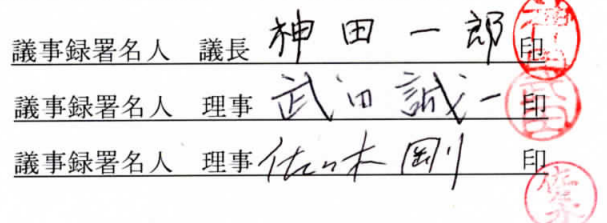 議事録署名人 議長 神田一郎 印
議事録署名人 理事 武田誠一 印
議事録署名人 理事 佐々木剛 印
神田
武田
佐々木